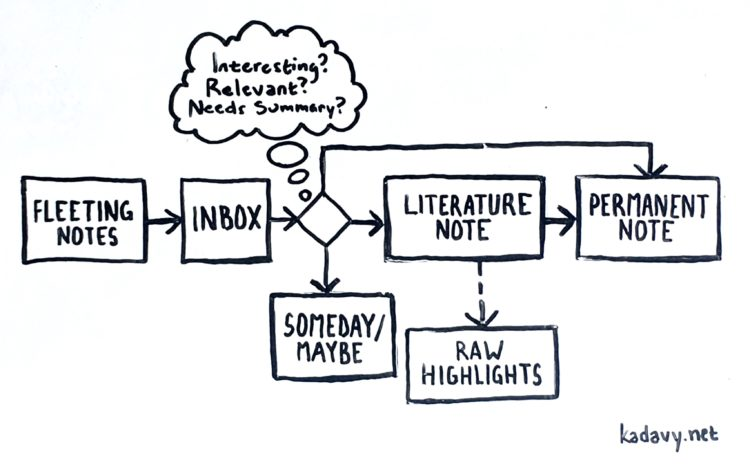 Interesting?
Relevant?
Needs Summary?
FLEETING
NOTES
INBOX
LITERATURE
NOTE
PERMANENT
NOTE
SOMEDAY/
MAYBE
RAW
HIGHLIGHTS
kadavy.net